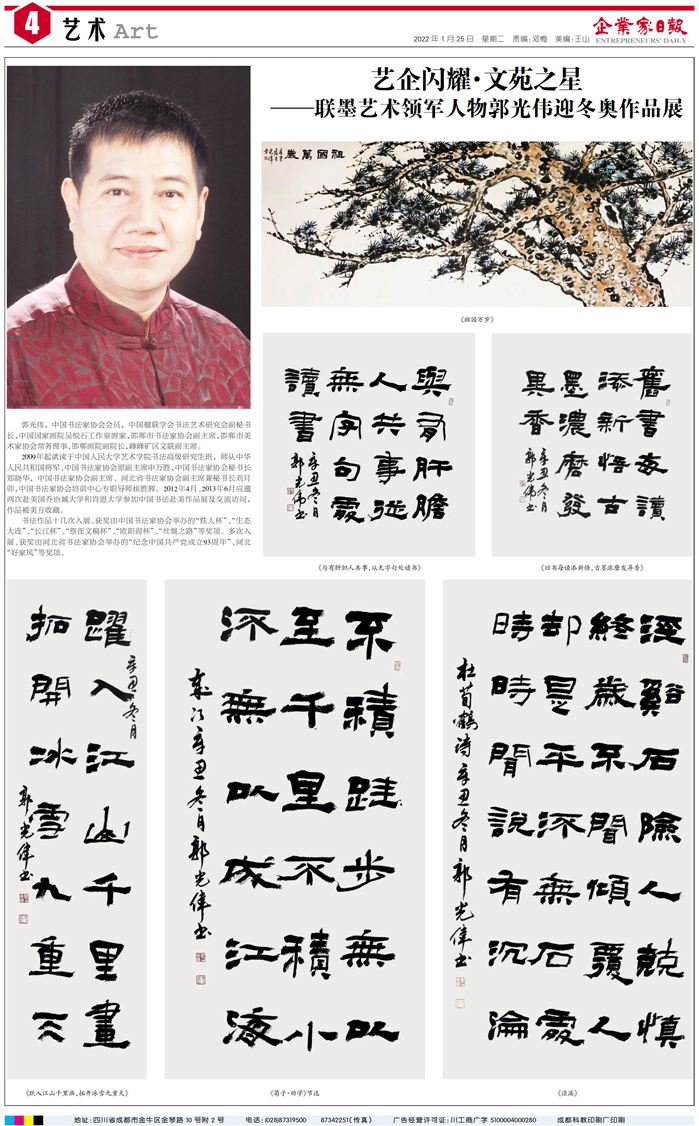 4 艺术 Art
2022年1月25日 星期二 责编:邓梅 美编:王山
企業家日报
ENTREPRENEURS' DAILY
艺企闪耀·文苑之星
——联墨艺术领军人物郭光伟迎冬奥作品展
祖國萬歲
《祖国万岁》
郭光伟,中国书法家协会会员,中国楹联学会书法艺术研究会副秘书
长,中国国家画院吴悦石工作室画家,邯郸市书法家协会副主席,邯郸市美
术家协会常务理事,邯郸画院副院长,峰峰矿区文联副主席。
2009年起就读于中国人民大学艺术学院书法高级研究生班,师从中华
人民共和国将军、中国书法家协会原副主席申万胜,中国书法家协会秘书长
郑晓华,中国书法家协会副主席、河北省书法家协会副主席兼秘书长刘月
卯,中国书法家协会培训中心专职导师崔胜辉。2012年4月、2013年6月应邀
两次赴美国乔治城大学和肯恩大学参加中国书法赴美作品展及交流访问,
作品被美方收藏。
书法作品十几次入展、获奖由中国书法家协会举办的“铁人杯”、“生态
大连”、“长江杯”、“祭侄文稿杯”、“欧阳询杯”、“丝绸之路”等奖项。多次入
展、获奖由河北省书法家协会举办的“纪念中国共产党成立93周年”、河北
“好家风”等奖项。
與有肝膽
人共事從
無字句處
讀書
辛丑冬月
郭光偉书
《与有肝胆人共事,从无字句处读书》
舊書每讀
添新悟古
墨濃磨發
異香
辛丑冬月
郭光偉书
《旧书每读添新悟,古墨浓磨发异香》
躍入江山千里畫
拓開冰雪九重天
辛丑冬月
郭光偉书
《跃入江山千里画,拓开冰雪九重天》
不積跬步無以
至千里不積小
流無以成江海
歲次辛丑冬月郭光偉书
《荀子·劝学》节选
涇谿石險人兢慎
終歲不聞傾覆人
却是平流無石處
時時聞說有沉淪
杜荀鶴詩辛丑冬月郭光偉书
《泾溪》
地址:四川省成都市金牛区金琴路10号附2号 电话:(028)87319500 87342251(传真) 广告经营许可证:川工商广字5100004000280 成都科教印刷厂印刷